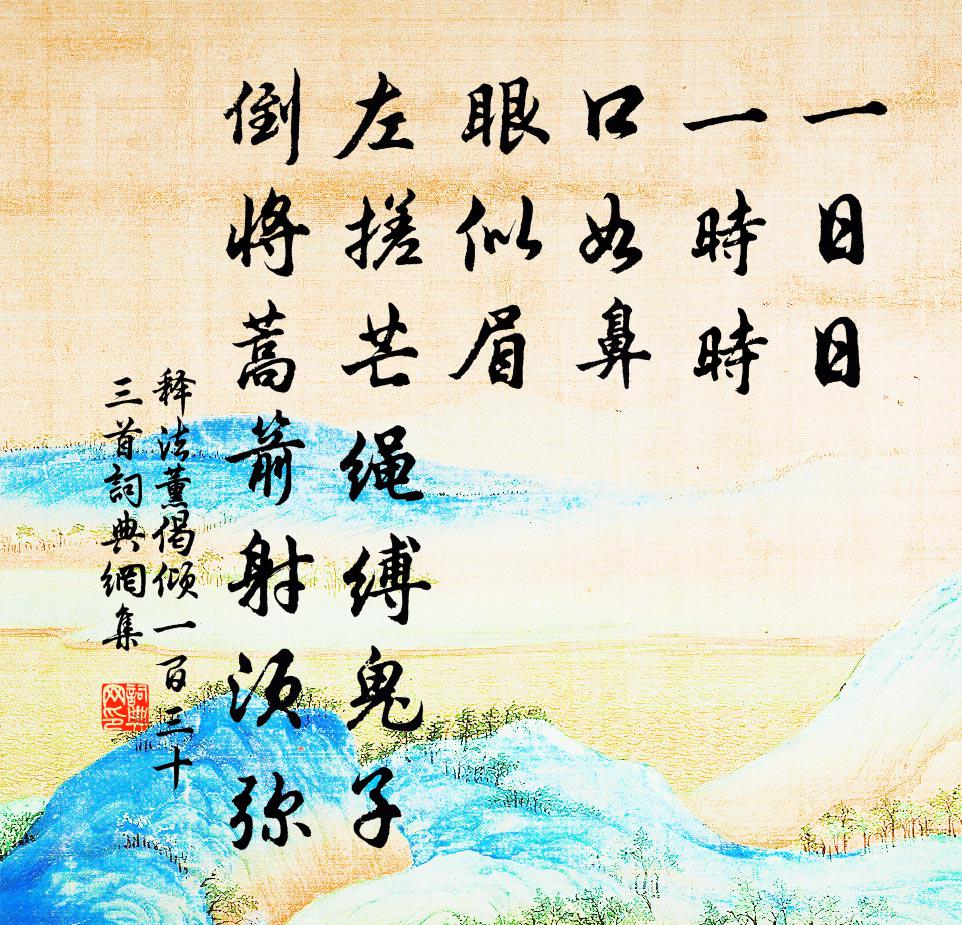 一日日
一時時
口如鼻
眼似眉
左搓芒绳缚鬼子
倒將蒿箭射须弥
释法薰偈倾一百三十
三首詞典網集